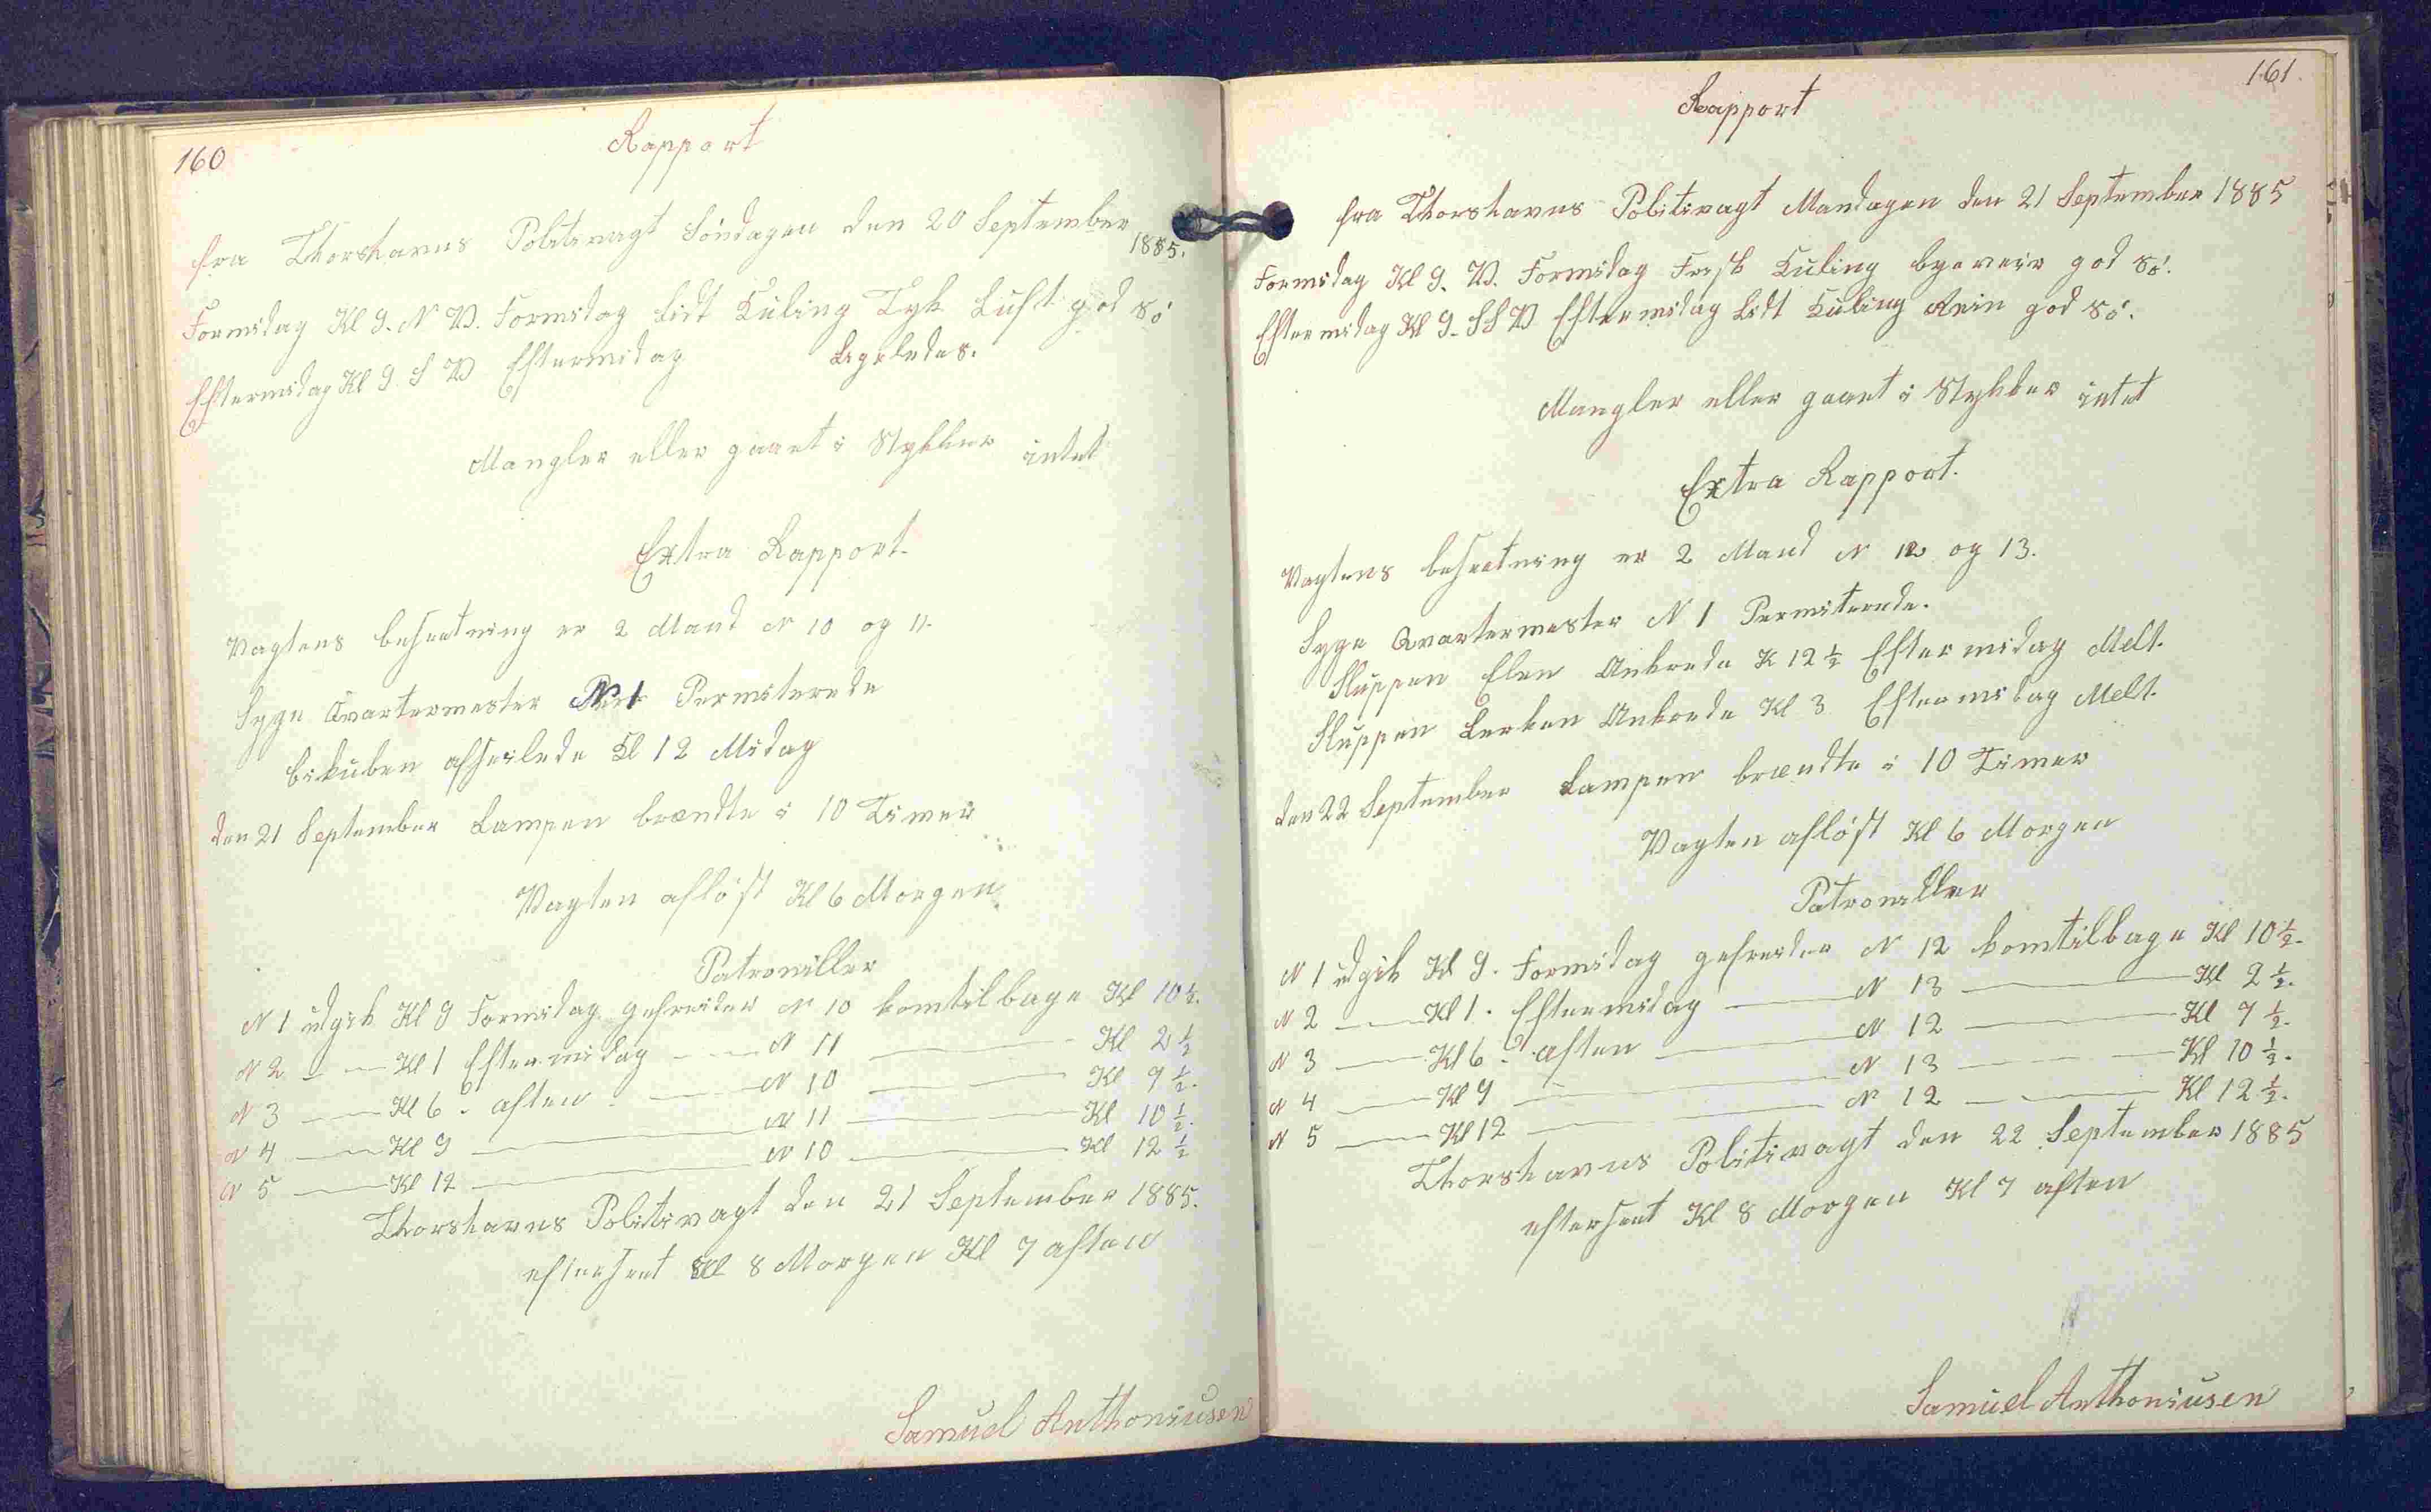 160
Rapport
fra Thorshavns Politivagt Söndagen den 20 September
1885.
Formidag Kl 9. N V. Formidag Lidt Kuling Tyk Luft god Sö
Eftermidag Kl 9 S V Eftermidag Ligeledes.
Mangler eller gaaet i Stykker intet
Extra Rapport.
Vagtens besætning er 2 Mand N 10 og 11.
Syge Qvartermester N 1 Permiterede
bikuben afseilede Kl 12 Midag
den 21 September Lampen brændte i 10 Timer
Vagten aflöst Kl 6 Morgen
Patroniller
N 1 udgik Kl 9 Formidag gefreider N 10 komtilbage Kl 10 ½.
N 2 — — Kl 1 Eftermidag — — N 11 — Kl 2 ½
N 3 — — Kl 6 . aften — — N 10 — — Kl 7 ½.
N 4 — — Kl 9 — N 11 — Kl 10 ½.
N 5 — — Kl 12 — N 10 — Kl 12 ½
Thorshavns Politivagt den 21 September 1885.
efterseet Kl 8 Morgen Kl 7 aften
Samuel Anthoniusen
161.
Rapport
fra Thorshavns Politivagt Mandagen den 21 September 1885
Formidag Kl 9. V. Formidag Frisk Kuling byeveir god Sö.
Eftermidag Kl 9. SSV Eftermidag Lidt Kuling Rein god Sö.
Mangler eller gaaet i Stykker intet
Extra Rapport.
Vagtens besætning er 2 Mand N 12 og 13.
Syge Qvartermester N 1 Permiterede.
Sluppen Elen Ankrede K 12 ½ Eftermidag Melt.
Sluppen Lerken Ankrede Kl 3 Eftermidag Melt.
den 22 September Lampen brændte i 10 Timer
Vagten aflöst Kl 6 Morgen
Patroniller
N 1 udgik Kl 9. Formidag gefreider N 12 komtilbage Kl 10 ½.
N 2 — — Kl 1. Eftermidag — N 13 — Kl 2 ½.
N 3 — — Kl 6 . aften — N 12 — Kl 7 ½.
N 4 — — Kl 9 — N 13 — — Kl 10 ½.
N 5 — — Kl 12 — N 12 — — Kl 12 ½.
Thorshavns Politivagt den 22 September 1885
efterseet Kl 8 Morgen Kl 7 aften
Samuel Anthoniusen